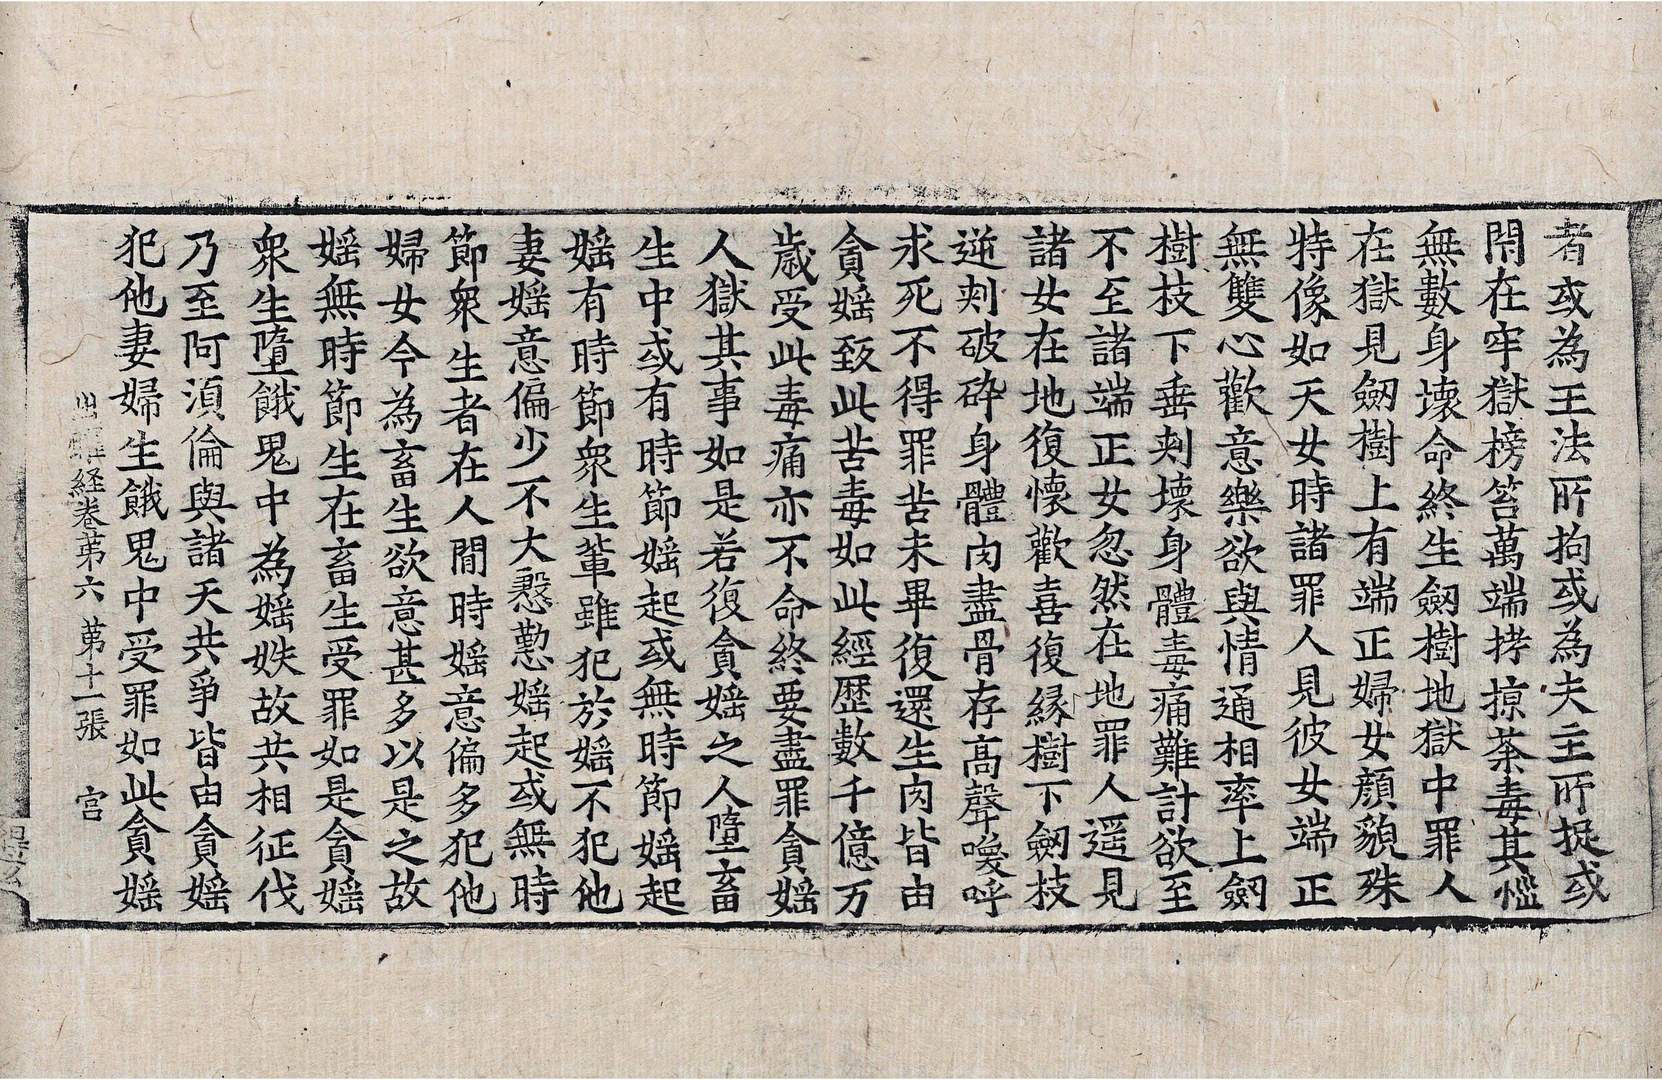 者或為王法所拘或為夫主所捉或
閇在牢獄榜笞萬端拷掠荼毒其愷
無數身壞命終生劒樹地獄中罪人
在獄見劒樹上有端正婦女顏貌殊
特像如天女時諸罪人見彼女端正
無雙心歡意樂欲與情通相率上劒
樹枝下垂刾壞身體毒痛難計欲至
不至諸端正女忽然在地罪人遥見
諸女在地復懷歡喜復縁樹下劒枝
逆刾破碎身體肉盡骨存高聲喚呼
求死不得罪苦未畢復還生肉皆由
貪婬致此苦毒如此經歷數千億万
歲受此毒痛亦不命終要盡罪貪婬
人獄其事如是若復貪婬之人墮畜
生中或有時節婬起或無時節婬起
婬有時節衆生輩雖犯於婬不犯他
妻婬意偏少不大慇懃婬起或無時
節衆生者在人間時婬意偏多犯他
婦女今為畜生欲意甚多以是之故
婬無時節生在畜生受罪如是貪婬
衆生墮餓鬼中為婬妷故共相征伐
乃至阿湏倫與諸天共爭皆由貪婬
犯他妻婦生餓鬼中受罪如此貪婬
出曜経卷第六 第十一張 宮